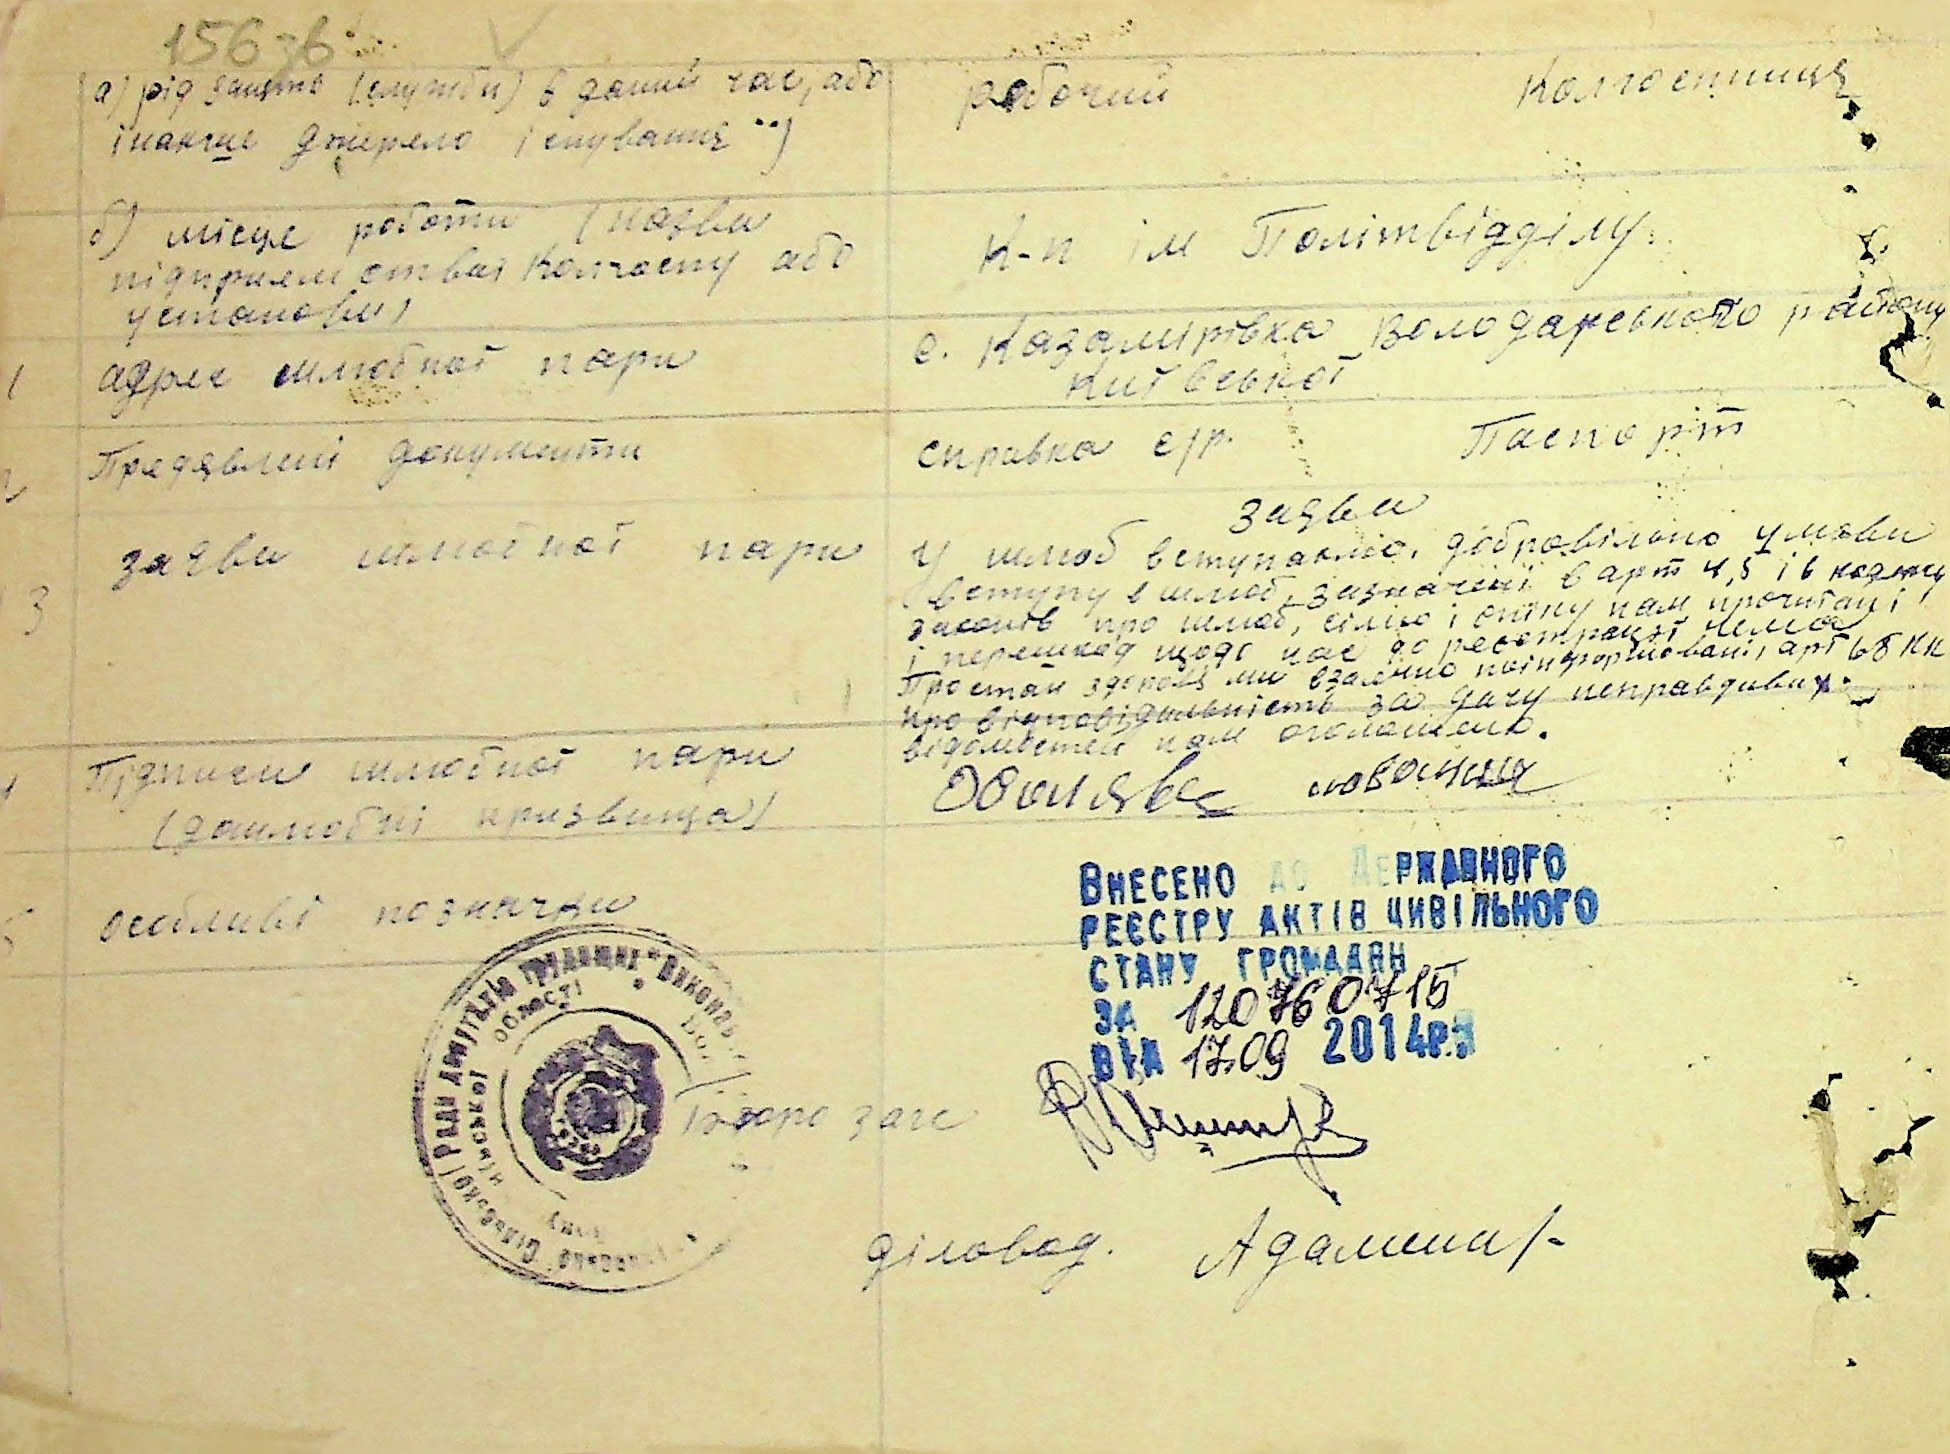 156 зв
а) рід занять (служби) в даний час, або робочий Колгоспниця
інакше джерело існування
б) місце роботи (назви К-п ім Політвідділу.
підприємства колгоспу або
установи)
1 адрес шлюбної пари с. Казимірівка Володарського району
Київської
Предявлені документи справка с/р. Паспорт
заяви
3 заяви шлюбної пари У шлюб вступаємо, добровільно умови
вступу в шлюб, зазначені в арт 4, 5 і 6 кодексу
законів про шлюб, сімю і опіку нам прочитані
і перешкод щодо нас до реєстрації нема
Про стан здоровя ми взаємно поінформовані, арт 68 КК
про відповідальність за дачу неправдивих
відомостей нам оголошено.
Підписи шлюбної пари
(дошлюбні призвища)
5 особливі позначки
Внесено до Державного
реєстру актів цивільного
стану громадян
за 12076 0715
від 17.09 2014р.
Ради депутатів трудящих
Сільської
області
Бюро загс
діловод.